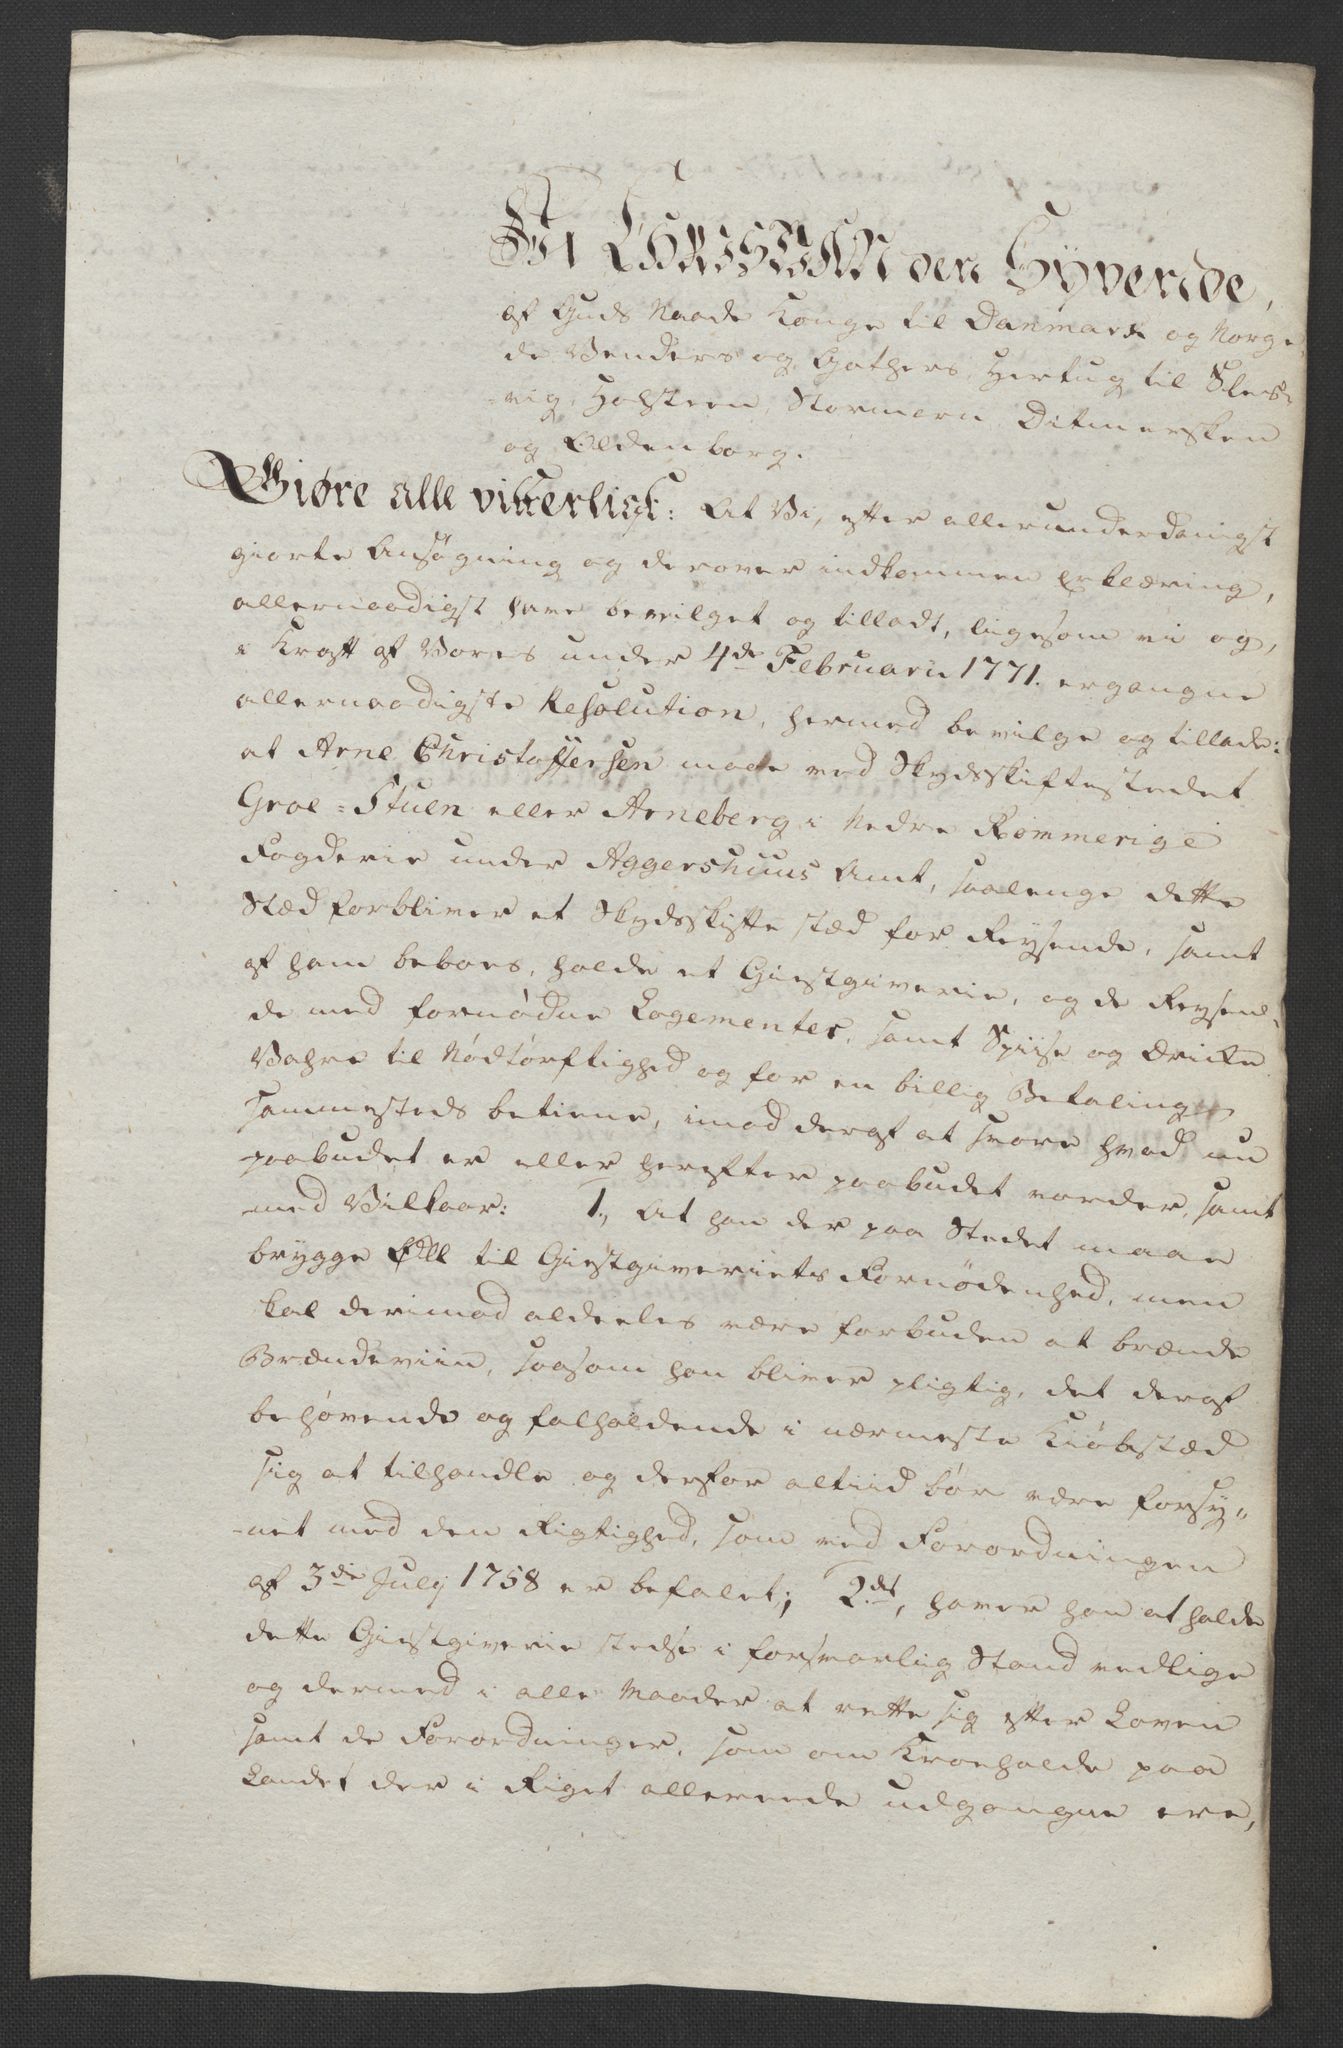 Vi CHRISTIAN den Syvende,
af Guds Naade Konge til Danmark og Norge
de Venders og Gothers, Hertug til Sles=
=vig, Holsteen, Stormarn Ditmersken
og Oldenborg.
Giøre alle vitterligt: At Vi, efter allerunderdanigst
giorte Ansøgning og derover indkommen Erklæring,
allernaadigst have bevilget og tilladt, ligesom vi og,
i Kraft af Vores under 4de Februarii 1771. ergangne
allernaadigste Resolution, hermed bevilge og tillade:
at Arne Christoffersen maae ved Skydsskiftestedet
Groe=Stuen eller Arneberg i Nedre Rommerige
Fogderie under Aggershuus Amt, saalenge dette
Stæd forbliver et Skydsskifte stæd for Reysende, samt
af ham beboes, holde et Giestgiverie, og de Reysen=
de med fornødne Logementer, samt Spiise og Dricke
Vahre til Nødtørftighed og for en billig Betaling
sammesteds betiene, imod deraf at svare hvad nu
paabudet er eller herefter paabudet vorder, samt
med Vilkaar: 1., At han der paa Stedet maae
brygge Øll til Giestgiveriets Fornødenhed, men
skal derimod aldeeles være forbuden at brænde
Brændeviin, saasom han bliver pligtig, det deraf
behøvende og falholdende i nærmeste Kiøbstæd
sig at tilhandle og derfor altiid bør være forsy„
-net med den Rigtighed, som ved Forordningen
af 3die July 1758 er befalet; 2det, haver han at holde
dette Giestgiverie stedse i forsvarlig Stand vedlige
og dermed i alle Maader at rette sig efter Loven
samt de Forordninger, som om Kroeholde paa
Landet der i Riget allereede udgangne ere,